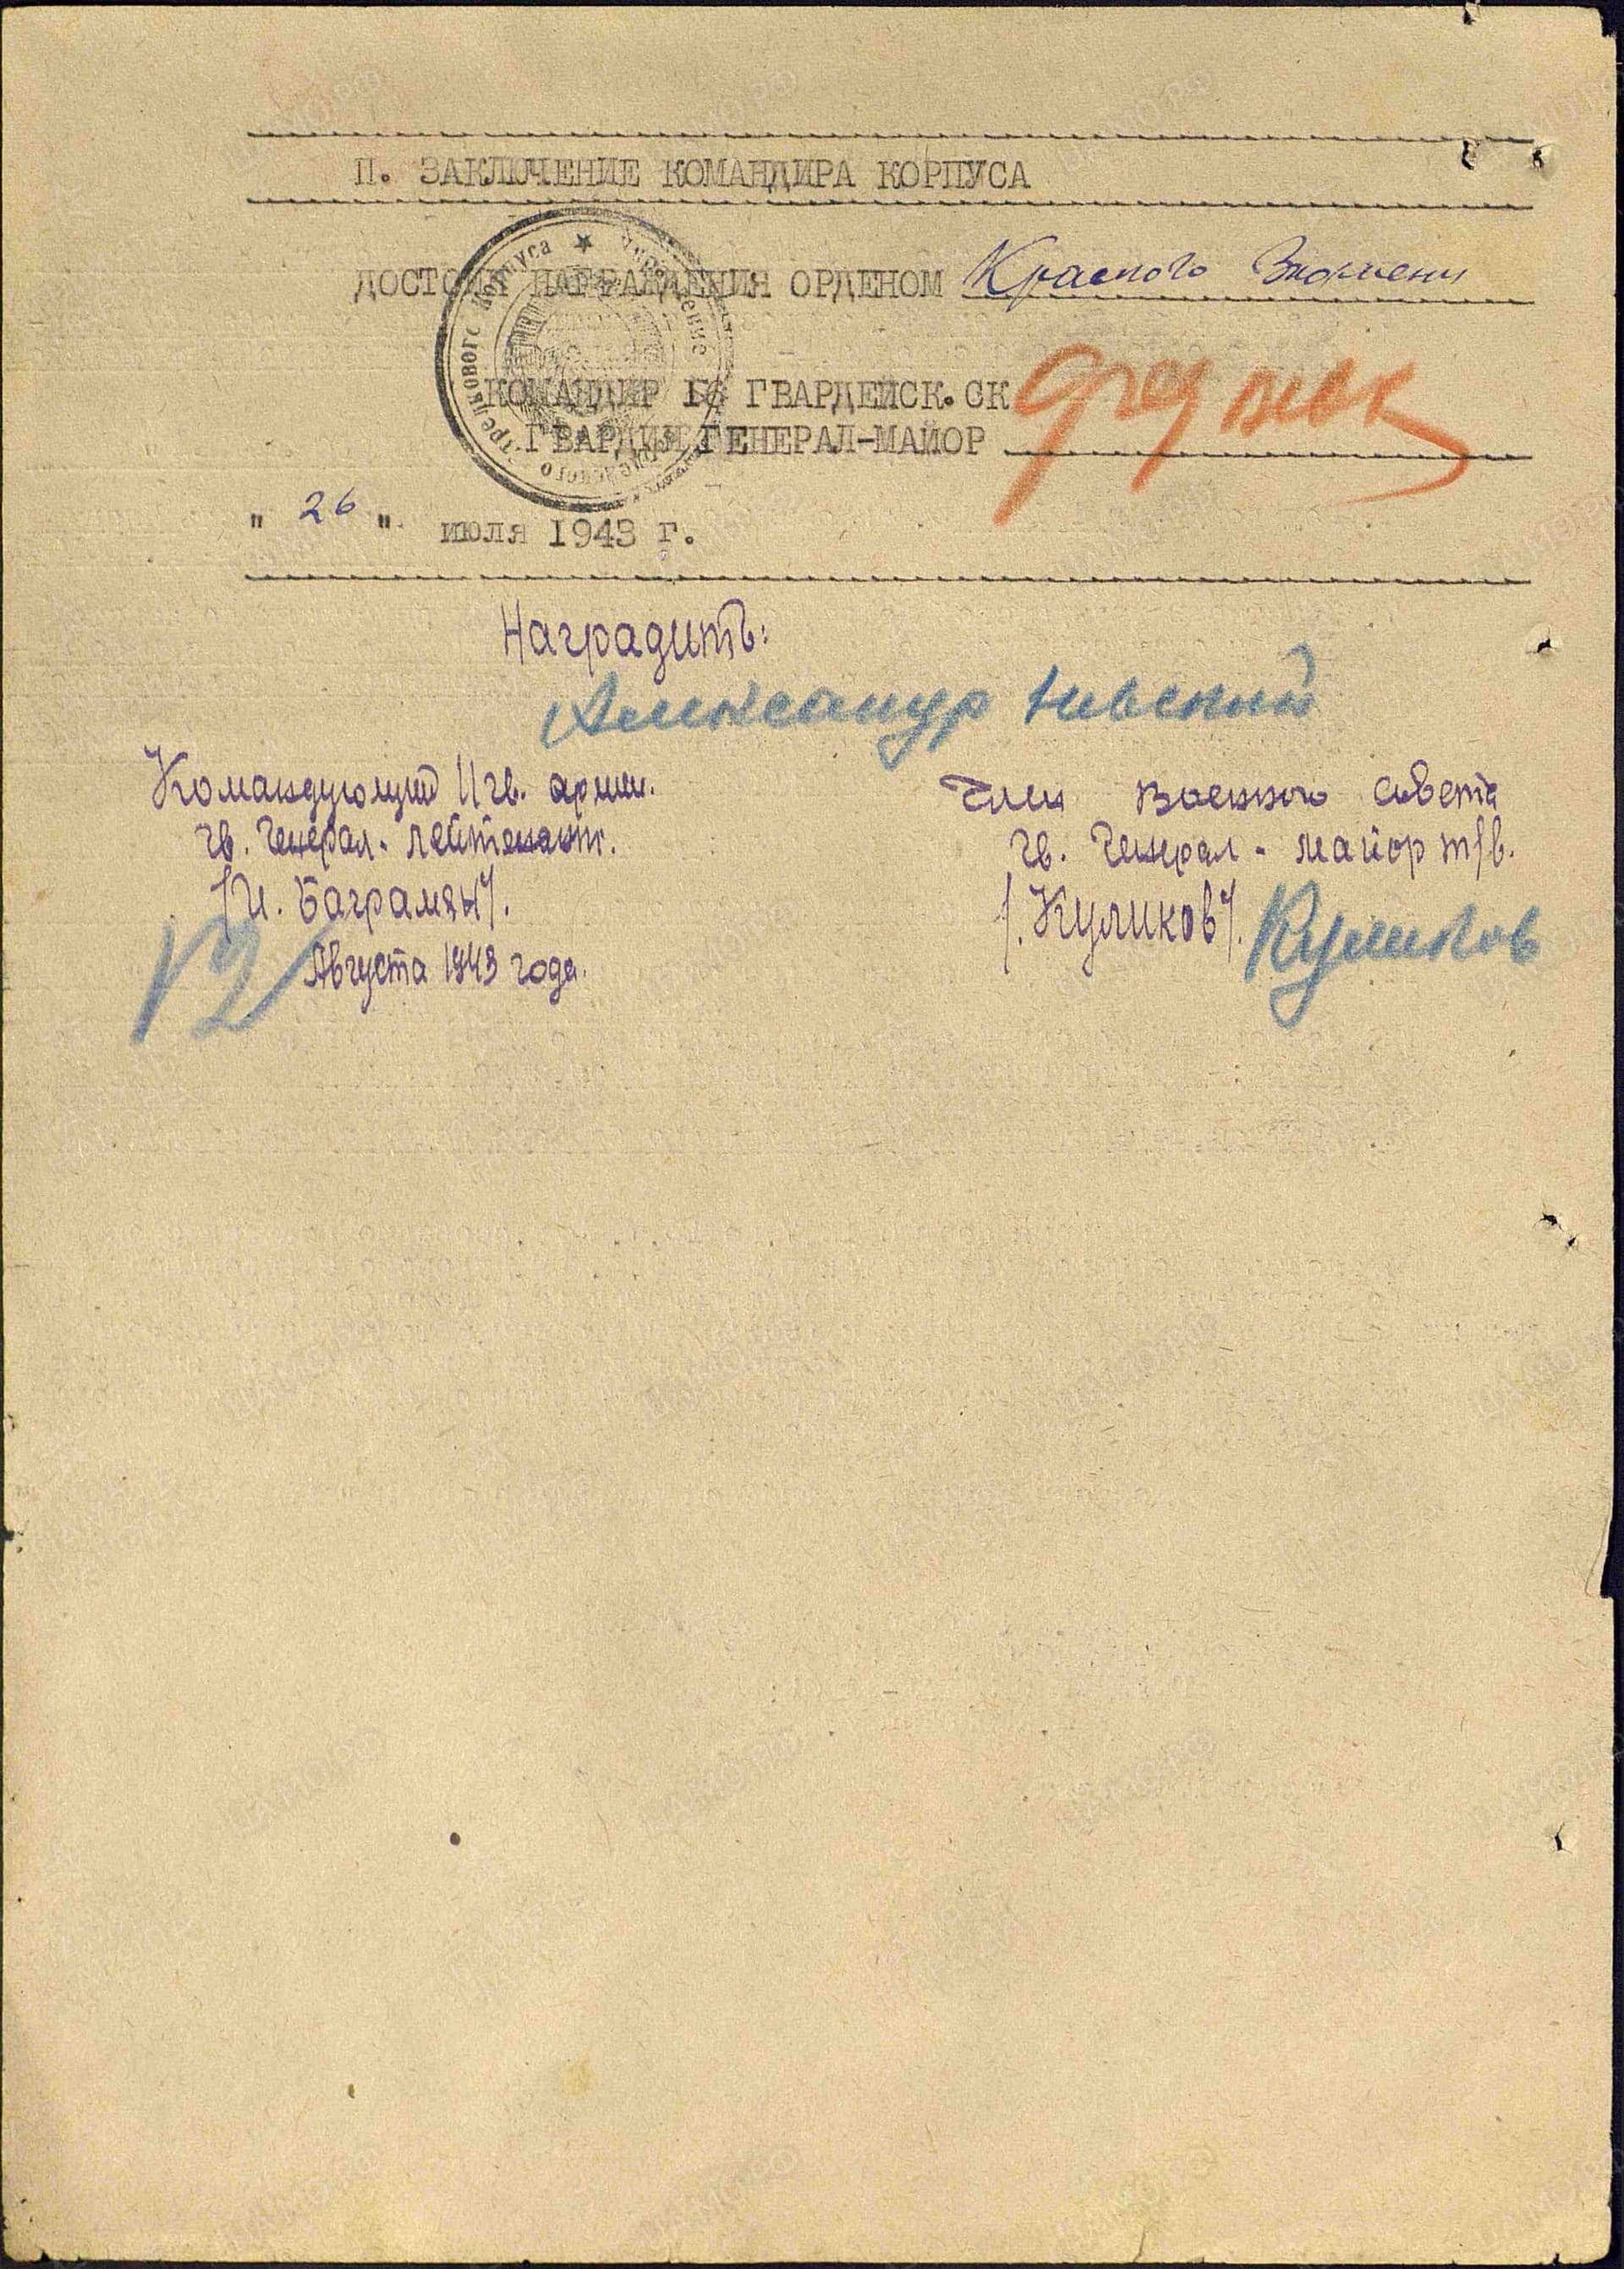 П. ЗАКЛЮЧЕНИЕ КОМАНДИРА КОРПУСА
ДОСТОИН НАГРАЖДЕНИЯ ОРДЕНОМ Красного Знамени
КОМАНДИР 16 ГВАРДЕЙСК. СК
ГВАРДИИ ГЕНЕРАЛ-МАЙОР
" 26 " июля 1943 г.
Наградить:
Александр Невский
Командующий 11 гв. армии.
гв. Генерал-лейтенант.
/И. Баграмян/.
12 Августа 1943 года.
Член Военного Совета
гв. Генерал-майор т/в.
/. Куликов/. Куликов
Управление
стрелкового корпуса
ЦАМО.РФ